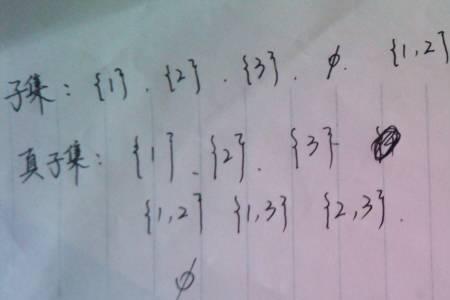 子集: {1}. {2}. {3}. ϕ. {1,2}
真子集: {1}. {2}. {3}
{1,2} {1,3} {2,3}.
ϕ